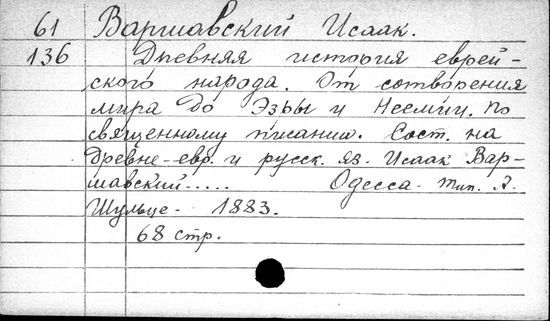 61 Варшавский Исаак.
136 Древняя история еврей-
ского народа. От сотворения
мира до Эзры и Неемии. По
священному писанию. Сост. на
древне-евр. и русск. яз. Исаак Вар-
шавский..... Одесса. тип. А.
Шульце. 1883.
68 стр.